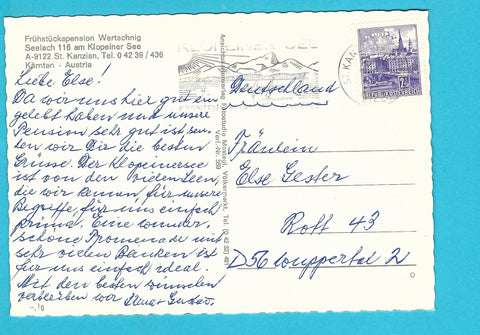 Frühstückspension Wertschnig
Seelach 116 am Klopeiner See
A-9122 St. Kanzian, Tel. 0 42 39 / 436
Kärnten - Austria
Liebe Else!
Da wir uns hier gut ein
gelebt haben und unsere
Pension sehr gut ist, sen-
den wir Dir die besten
Grüsse. Der Klopeinersee
ist von den vielen Seen,
die wir kennen für unsere
Begriffe für uns einfach
prima. Eine wunder-
schöne Promenade mit
sehr vielen Banken ist
für uns einfach ideal.
Mit den besten Wünschen
verbleiben wir
-.10
KLOPEINER SEE
KÄRNTEN
Völkermarkt, Tel.
Deutschland
Fräulein
Else Gester
Rott 43
D 56 Wuppertal 2
ST. KAN
REPUBLIK ÖSTERREICH